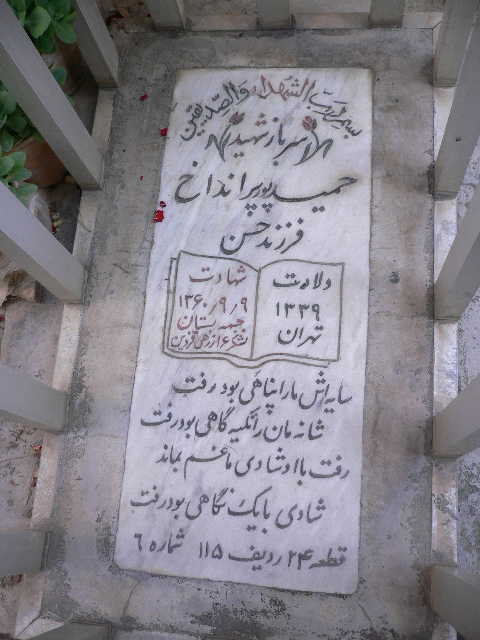 بسم رب الشهداء والصدیقین
سرباز شهید
حمید پور پرانداخ
فرزند حسن
ولادت
۱۳۳۹
تهران
شهادت
۱۳۶۰/۹/۹
جبهه بستان
لشکر ۱۶ زرهی قزوین
سایه‌اش ما را پناهی بود رفت
شانه‌مان را تکیه گاهی بود رفت
رفت با او شادی ما غم بماند
شادی با یک نگاهی بود رفت
قطعه ۲۴ ردیف ۱۱۵ شماره ۶